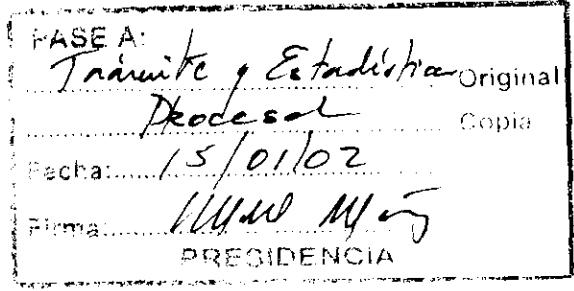 PASE A:
Trámite y Estadística Original
Procesal Copia
Fecha: 15/01/02
Firma:
PRESIDENCIA